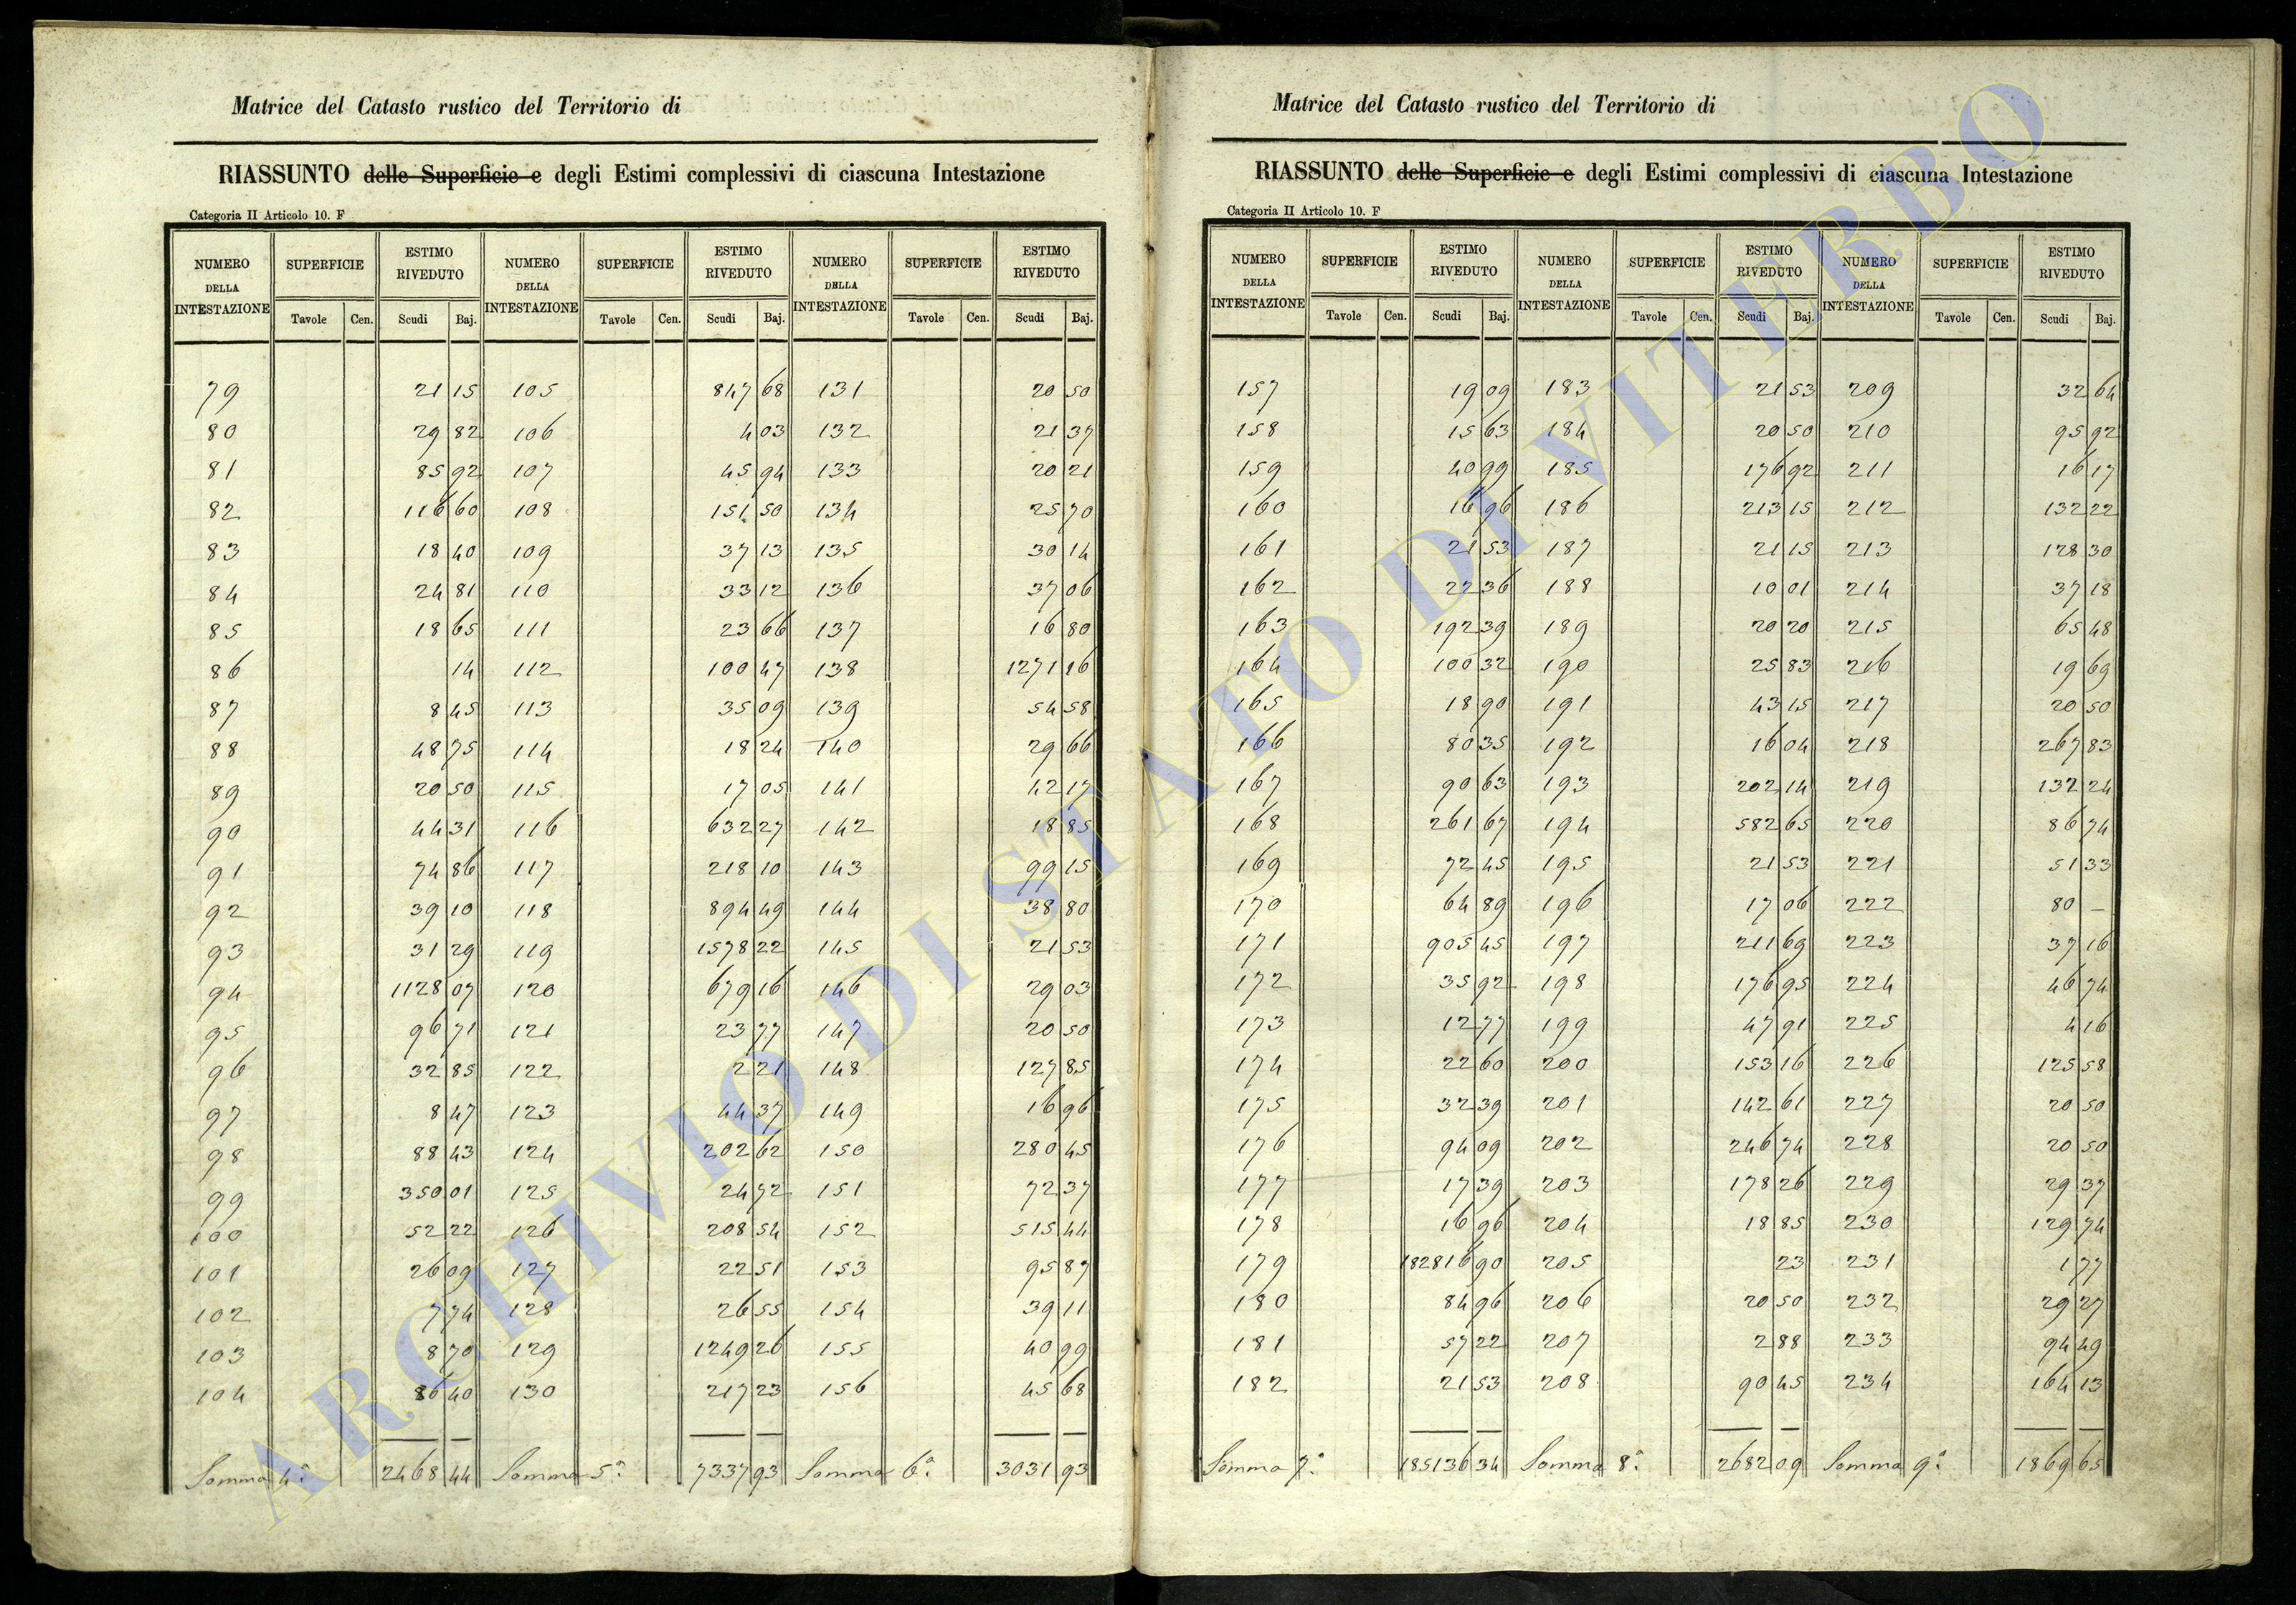 Matrice del Catasto rustico del Territorio di
RIASSUNTO delle Superficie e degli Estimi complessivi di ciascuna Intestazione
Categoria II Articolo 10. F
NUMERO DELLA INTESTAZIONE SUPERFICIE ESTIMO RIVEDUTO NUMERO DELLA INTESTAZIONE SUPERFICIE ESTIMO RIVEDUTO NUMERO DELLA INTESTAZIONE SUPERFICIE ESTIMO RIVEDUTO
Tavole Cen. Scudi Baj. Tavole Cen. Scudi Baj. Tavole Cen. Scudi Baj.
79 21 15 105 847 68 131 20 50
80 29 82 106 4 03 132 21 37
81 85 92 107 45 94 133 20 21
82 116 60 108 151 50 134 25 70
83 18 40 109 37 13 135 30 14
84 24 81 110 33 12 136 37 06
85 18 65 111 23 66 137 16 80
86 14 112 100 47 138 1271 16
87 8 45 113 35 09 139 54 58
88 48 75 114 18 24 140 29 66
89 20 50 115 17 05 141 42 17
90 44 31 116 632 27 142 18 85
91 74 86 117 218 10 143 99 15
92 39 10 118 894 49 144 38 80
93 31 29 119 1578 22 145 21 53
94 1128 07 120 679 16 146 29 03
95 96 71 121 23 77 147 20 50
96 32 85 122 2 21 148 127 85
97 8 47 123 44 37 149 16 96
98 88 43 124 202 62 150 280 45
99 350 01 125 24 72 151 72 37
100 52 22 126 208 54 152 515 44
101 26 09 127 22 51 153 95 87
102 7 74 128 26 55 154 39 11
103 8 70 129 1249 26 155 40 99
104 86 40 130 217 23 156 45 68
Somma 4ª 2468 44 Somma 5ª 7337 93 Somma 6ª 3031 93
Matrice del Catasto rustico del Territorio di
RIASSUNTO delle Superficie e degli Estimi complessivi di ciascuna Intestazione
Categoria II Articolo 10. F
NUMERO DELLA INTESTAZIONE SUPERFICIE ESTIMO RIVEDUTO NUMERO DELLA INTESTAZIONE SUPERFICIE ESTIMO RIVEDUTO NUMERO DELLA INTESTAZIONE SUPERFICIE ESTIMO RIVEDUTO
Tavole Cen. Scudi Baj. Tavole Cen. Scudi Baj. Tavole Cen. Scudi Baj.
157 19 09 183 21 53 209 32 64
158 15 63 184 20 50 210 95 92
159 40 99 185 176 92 211 16 17
160 16 96 186 213 15 212 132 22
161 21 53 187 21 15 213 128 30
162 22 36 188 10 01 214 37 18
163 192 39 189 20 20 215 65 48
164 100 32 190 25 83 216 19 69
165 18 90 191 43 15 217 20 50
166 80 35 192 16 04 218 267 83
167 90 63 193 202 14 219 132 24
168 261 67 194 582 65 220 86 74
169 72 45 195 21 53 221 51 33
170 64 89 196 17 06 222 80 —
171 905 45 197 211 69 223 37 16
172 35 92 198 176 95 224 46 74
173 12 77 199 47 91 225 4 16
174 22 60 200 153 16 226 125 58
175 32 39 201 142 61 227 20 50
176 94 09 202 246 74 228 20 50
177 17 39 203 178 26 229 29 37
178 16 96 204 18 85 230 129 74
179 182816 90 205 23 231 1 77
180 84 96 206 20 50 232 29 27
181 57 22 207 2 88 233 94 49
182 21 53 208 90 45 234 164 13
Somma 7ª 185136 34 Somma 8ª 2682 09 Somma 9ª 1869 65
ARCHIVIO DI STATO DI VITERBO